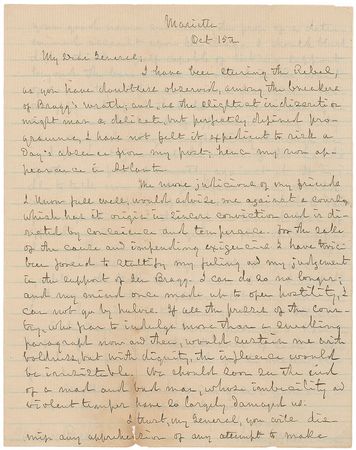 Marietta
Oct 15th
My Dear General,
I have been steering the Rebel,
as you have doubtless observed, among the breakers
of Bragg's wrath; and, as the slightest indiscretion
might mar a delicate, but perfectly defined pro-
gramme, I have not felt it expedient to risk a
Day's absence from my post; hence my non ap-
pearance in Atlanta.
The more judicious of my friends
I know full well, would advise me against a course
which has its origin in sincere conviction and is dic-
tated by conscience and temperance. For the sake
of the cause and impending exigencies I have twice
been forced to stultify my feeling and my judgement
in the support of Gen Bragg. I can do so no longer;
and my mind once made up to open hostility, I
can not go by halves. If all the presses of the coun-
try, who fear to indulge more than a sneaking
paragraph now and then, would sustain me with
boldness, but with dignity, the influence would
be irresistible. We should soon see the end
of a mad and bad man, whose imbecility and
violent temper have so largely damaged us.
I trust, my General, you will dis-
miss any apprehension of any attempt to make